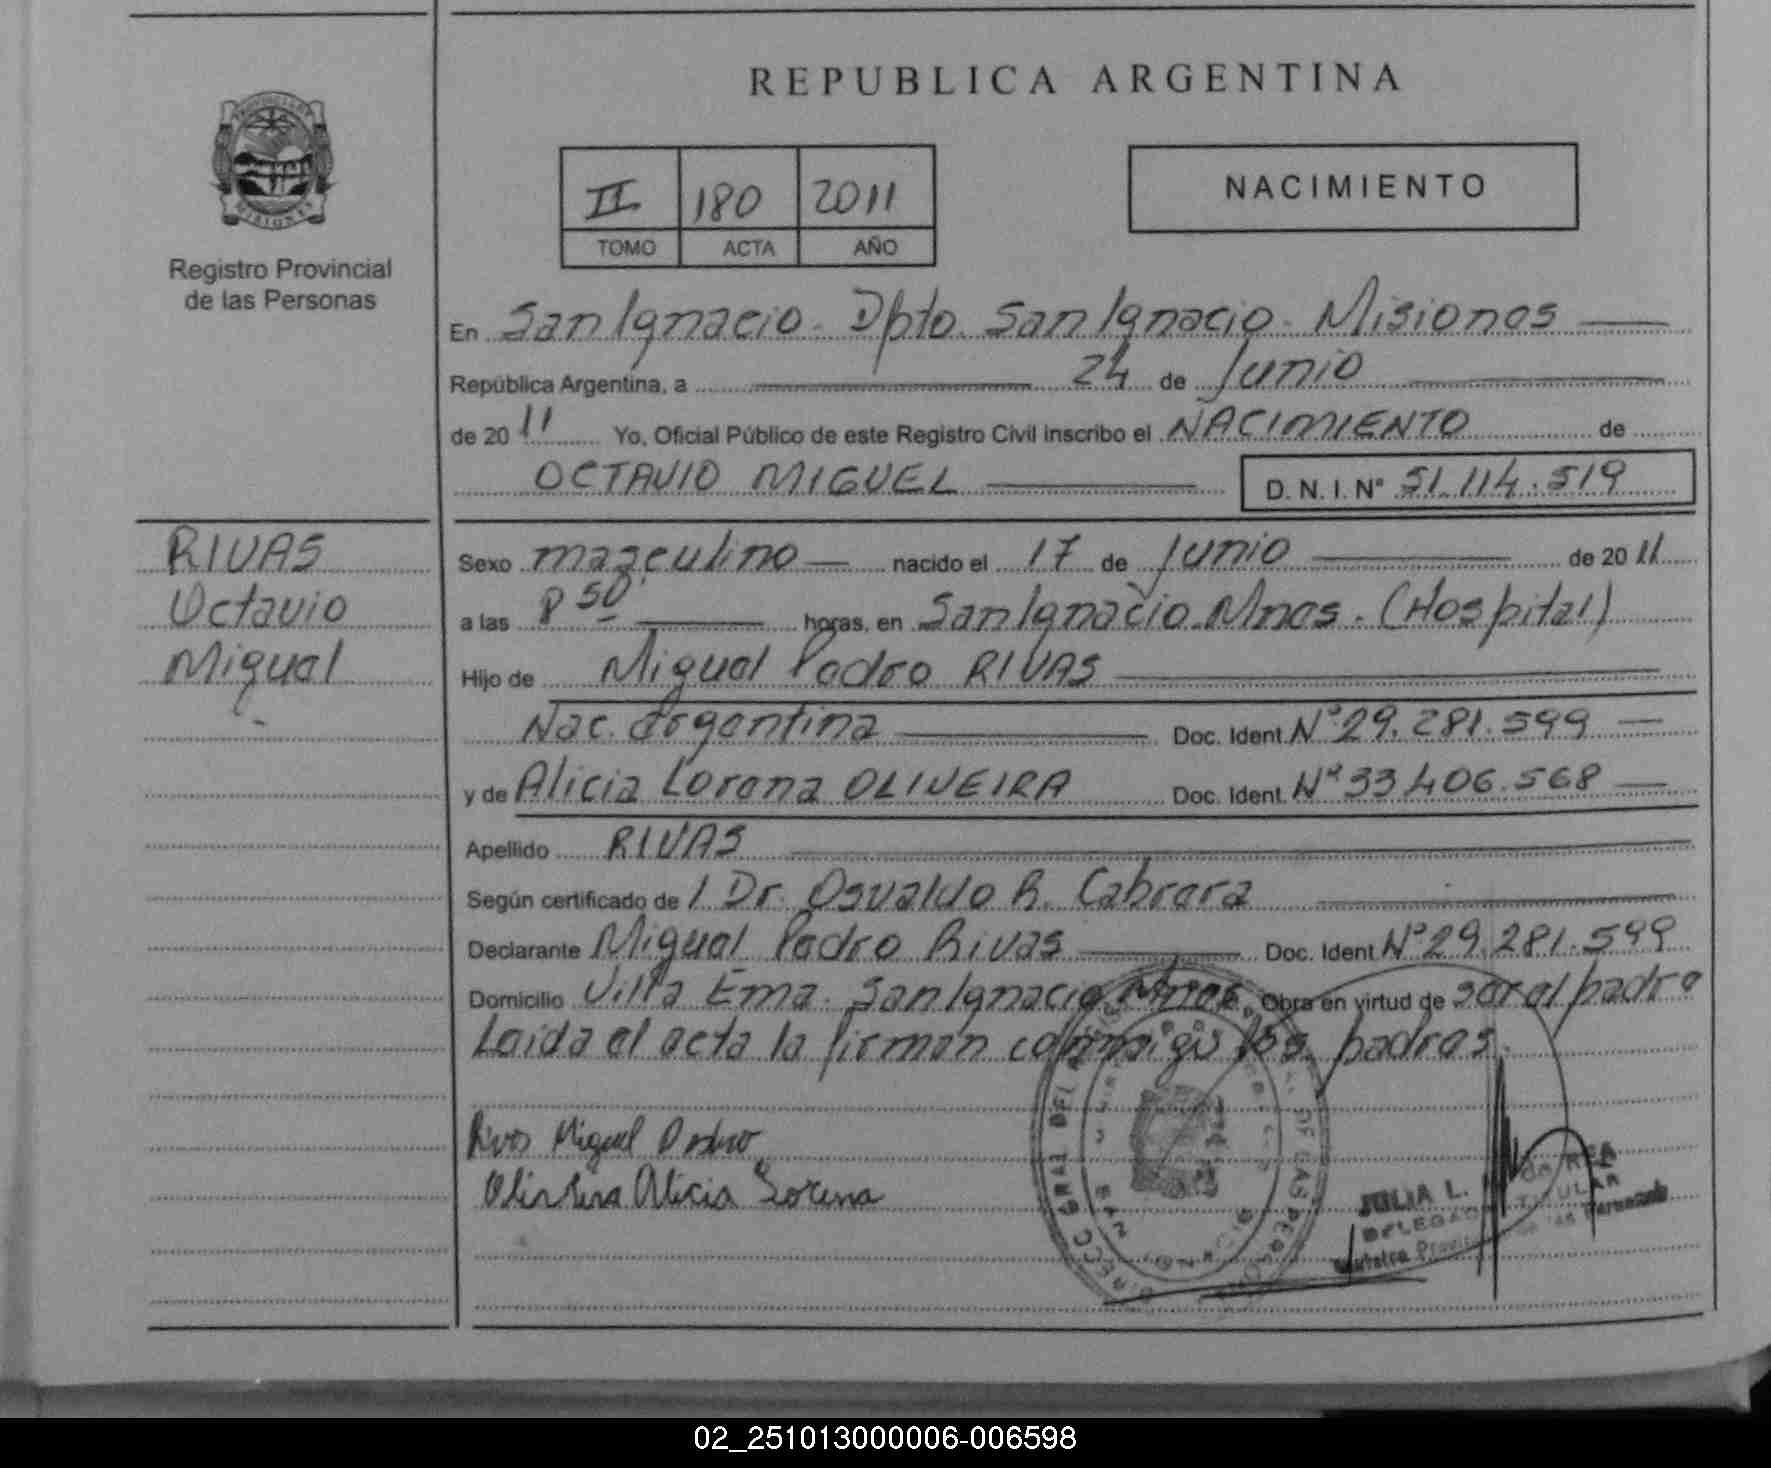 REPUBLICA ARGENTINA
PROVINCIA DE
MISIONES
Registro Provincial
de las Personas
II 180 2011
TOMO ACTA AÑO
NACIMIENTO
En San Ignacio. Dpto. San Ignacio. Misiones
República Argentina, a 24 de Junio
de 20 11 Yo, Oficial Público de este Registro Civil inscribo el NACIMIENTO de
OCTAVIO MIGUEL D. N. I. N° 51.114.519
RIVAS
Octavio
Miguel
Sexo masculino nacido el 17 de Junio de 20 11
a las 8 50 horas, en San Ignacio Mnes. (Hospital)
Hijo de Miguel Pedro RIVAS
Nac. argentina Doc. Ident N° 29.281.599
y de Alicia Lorena OLIVEIRA Doc. Ident. N° 33 406.568
Apellido RIVAS
Según certificado de l Dr. Osvaldo R. Cabrera
Declarante Miguel Pedro Rivas Doc. Ident N° 29.281.599
Domicilio Villa Ema. San Ignacio Mnes. Obra en virtud de ser el padre
Leida el acta la firman conmigo los padres.
Rivas Miguel Pedro
Oliveira Alicia Lorena
JULIA L. de REA
DELEGADA TITULAR
Registro Provincial de las Personas
02_251013000006-006598